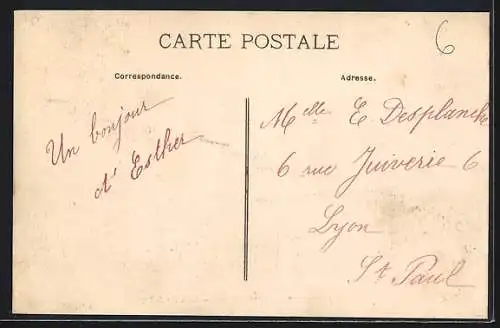 CARTE POSTALE
6
Correspondance.
Un bonjour
d' Esther
Adresse.
Melle E Desplanche
6 rue Juiverie 6
Lyon
St Paul